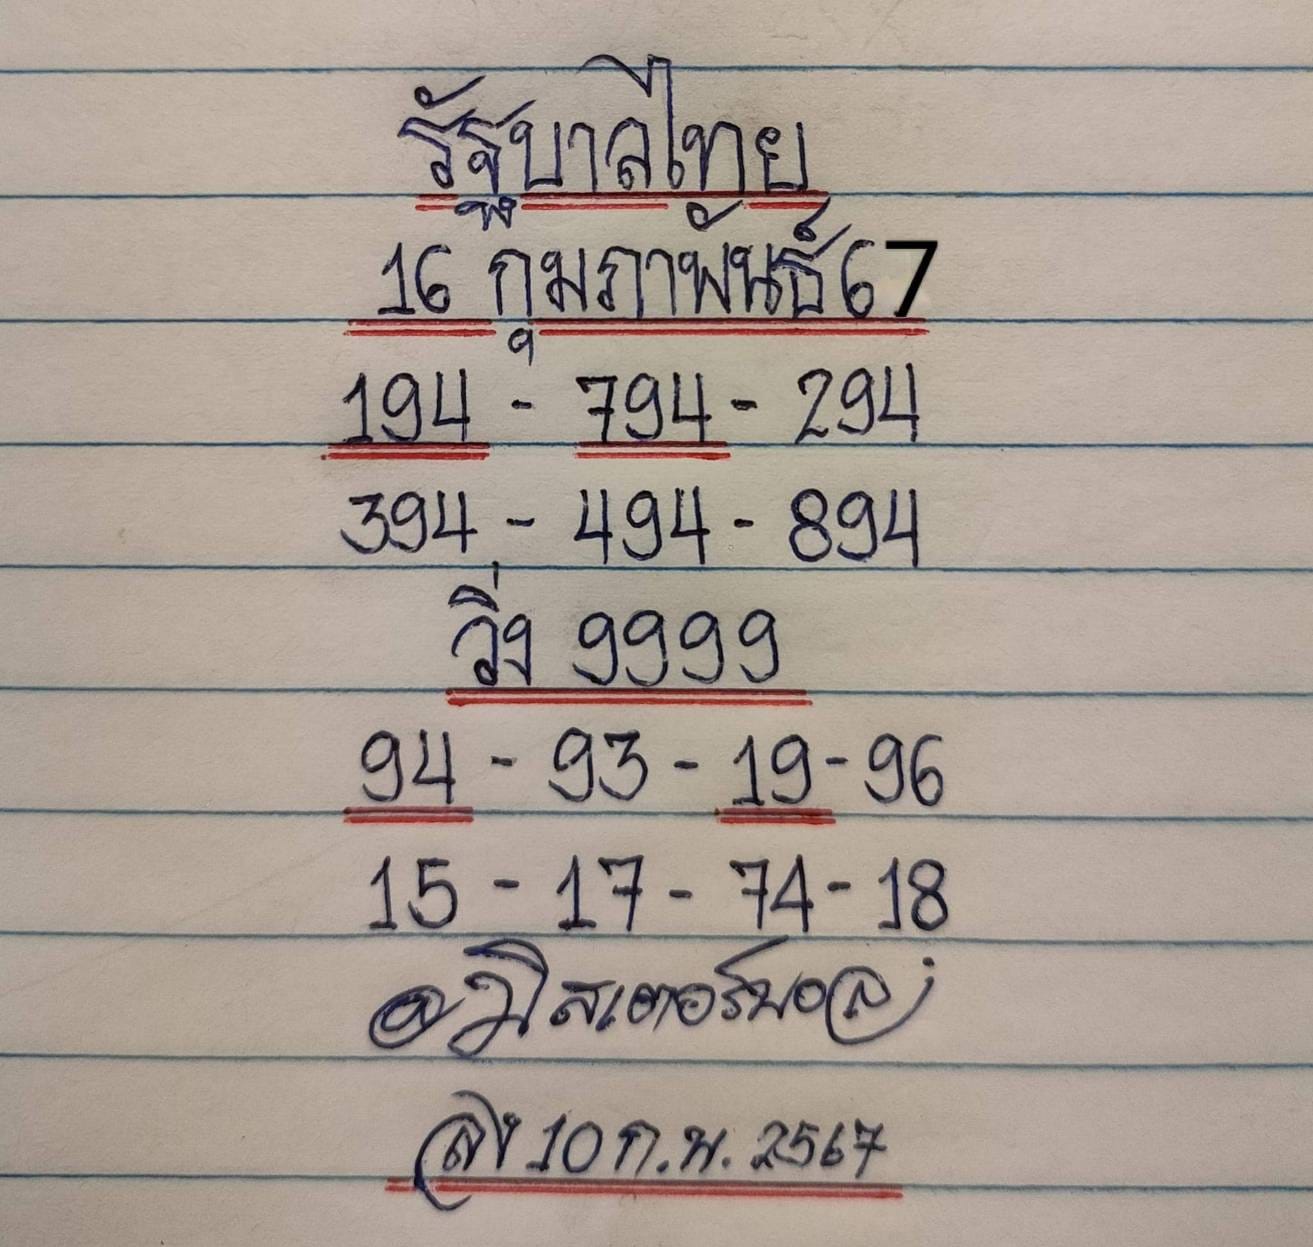 รัฐบาลไทย
16 กุมภาพันธ์67
194 - 794 - 294
394 - 494 - 894
วิ่ง 9999
94 - 93 - 19 - 96
15 - 17 - 74 - 18
อ.มิสเตอร์บอล
ลง 10 ก.พ. 2567